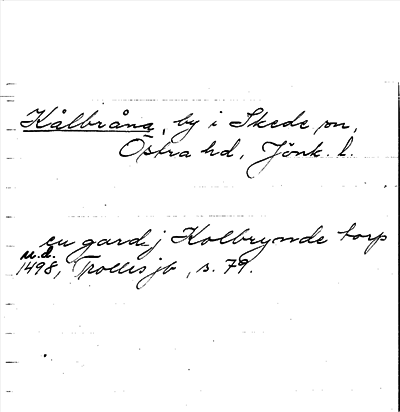 Kålbråna, by i Skede sn,
Östra hd, Jönk. l.
en gard j Kolbrynde torp
u.d.
1498, Trolles jb, s. 79.